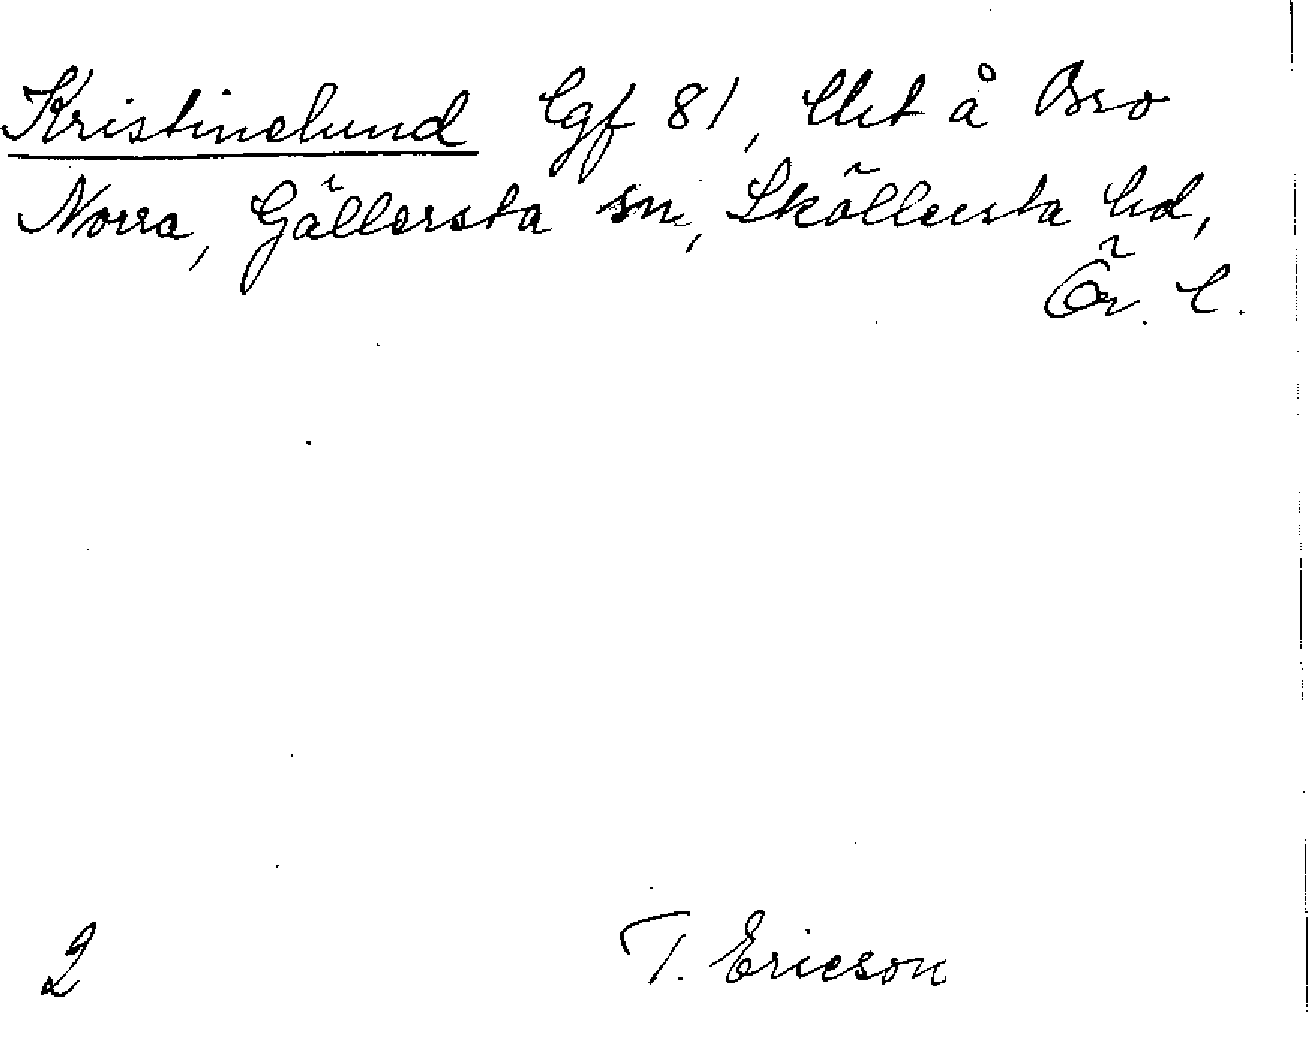 Kristinelund lgf 81, lht å Bro
Norra, Gällersta sn, Sköllersta hd,
Ör. l.
2 T. Ericson